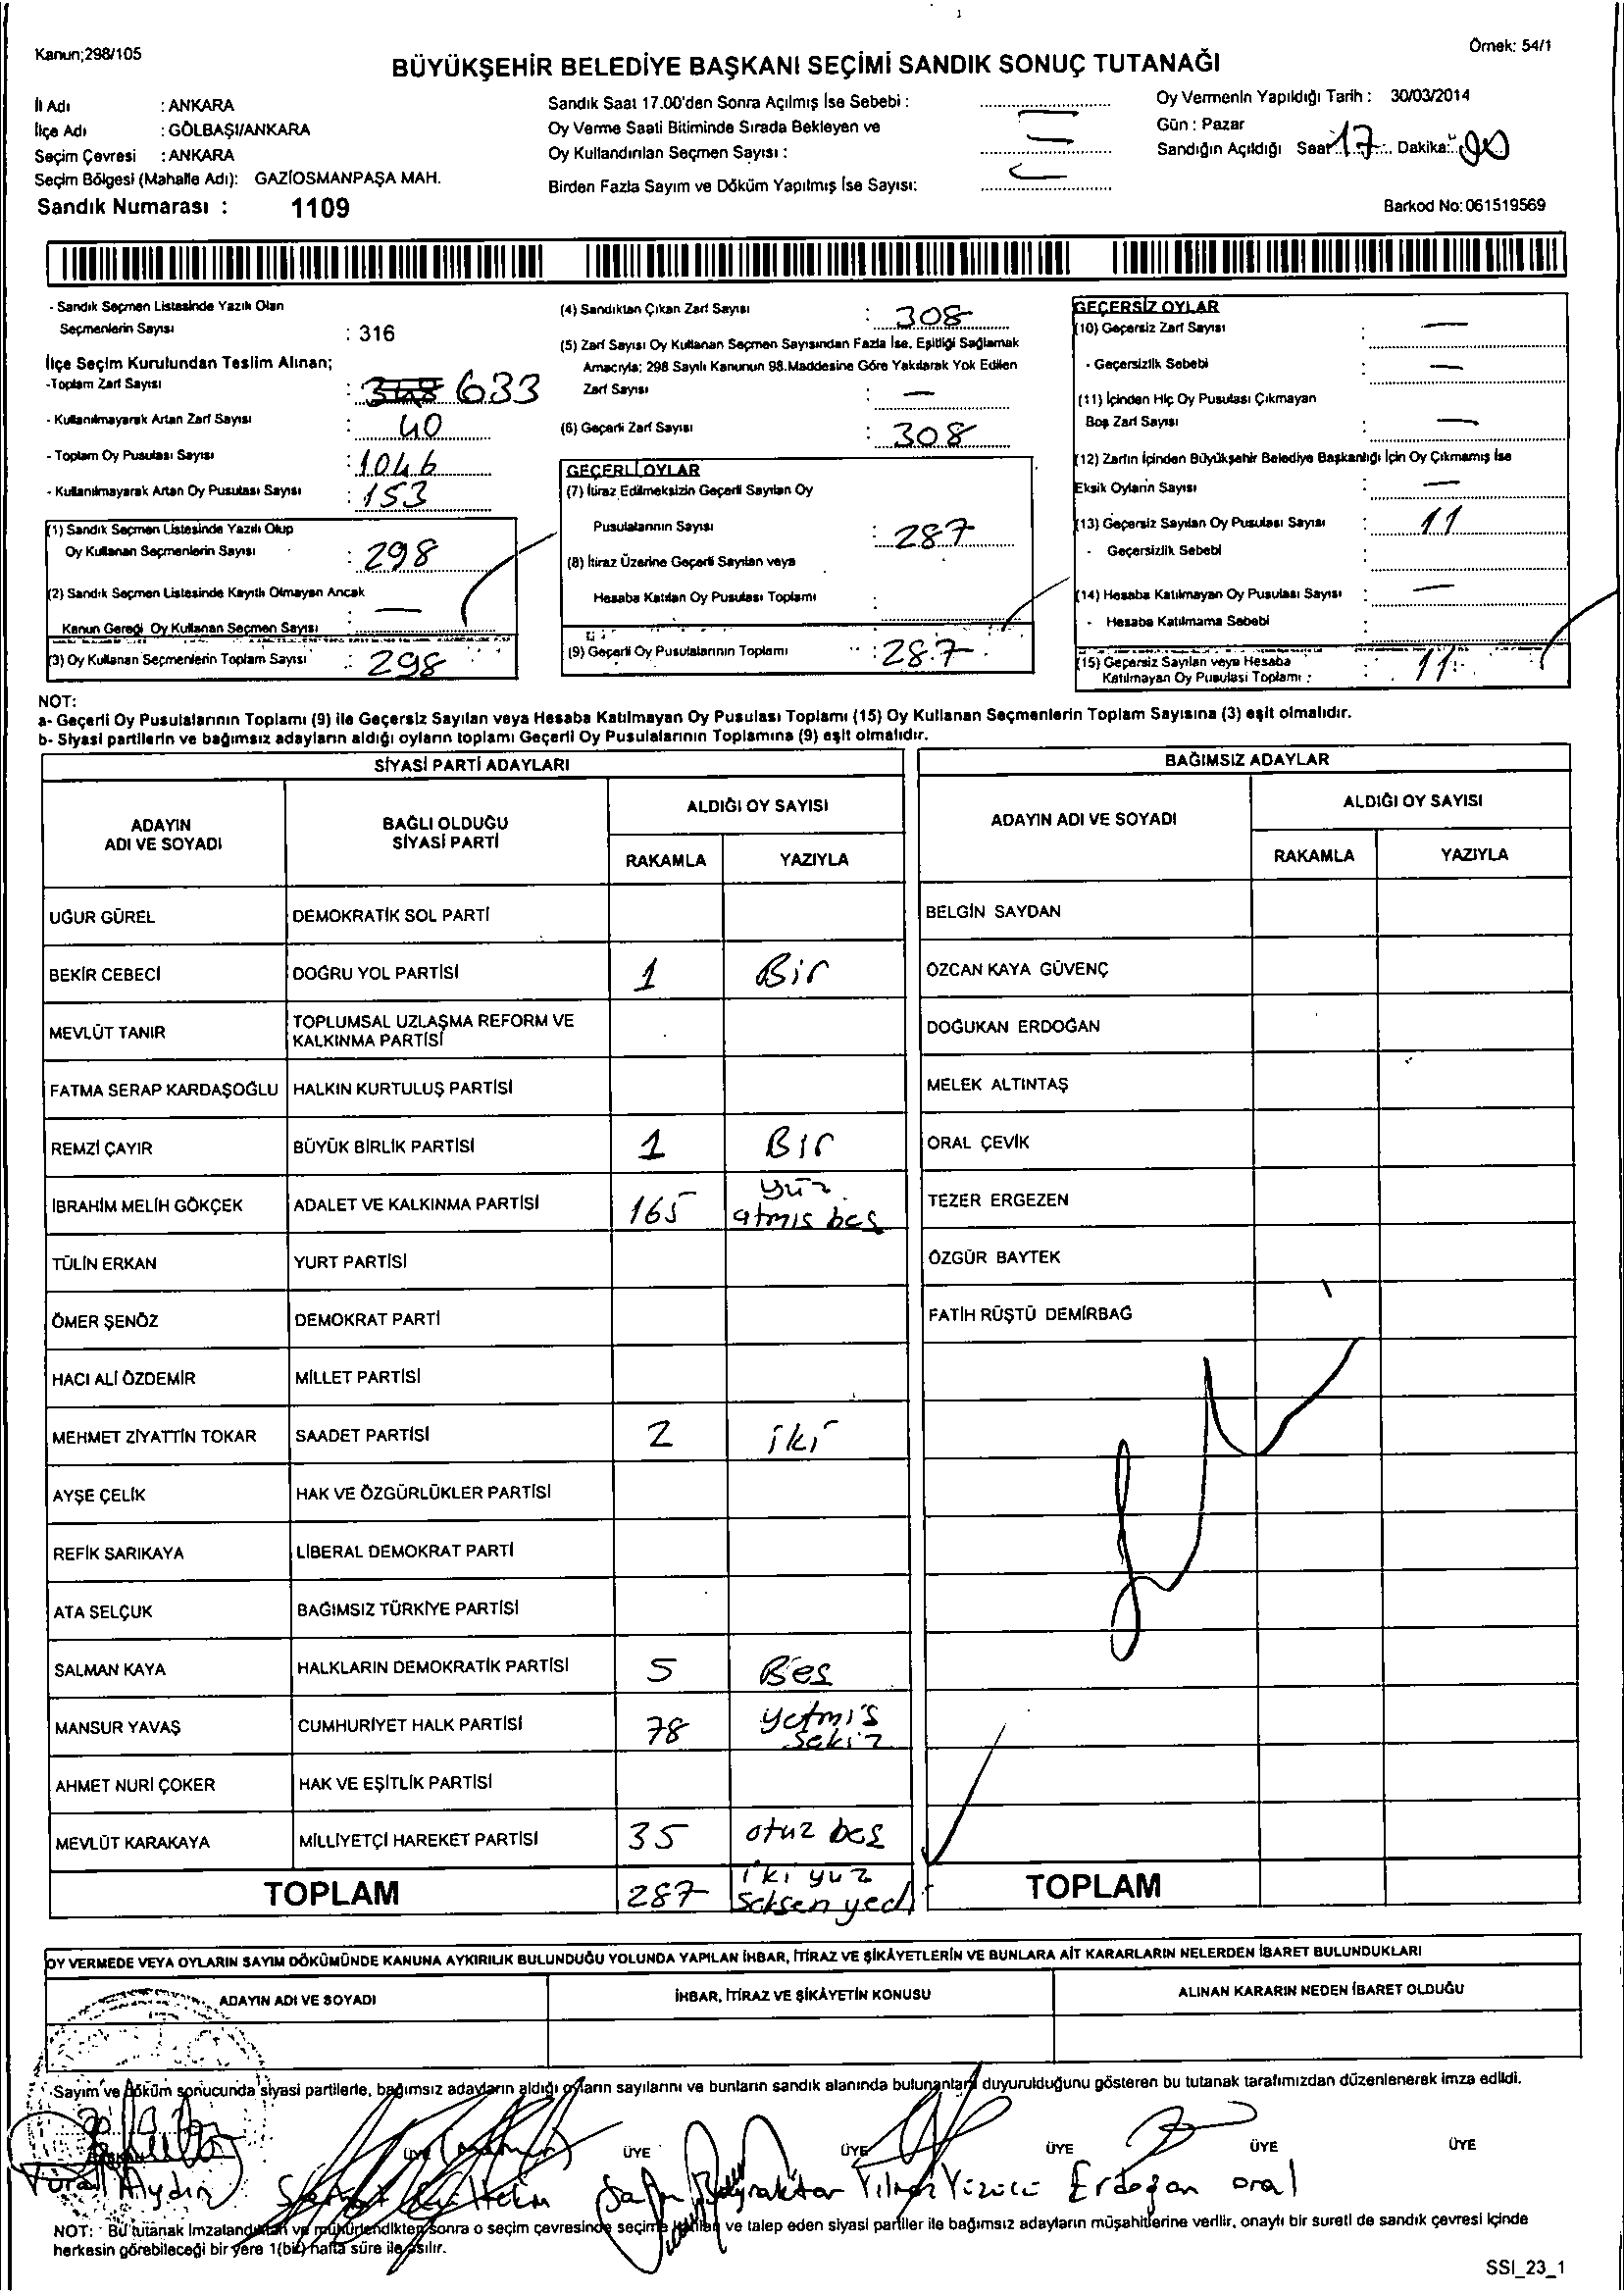 Kanun;298/105
Örnek: 54/1
BÜYÜKŞEHİR BELEDİYE BAŞKANI SEÇİMİ SANDIK SONUÇ TUTANAĞI
İl Adı : ANKARA
İlçe Adı : GÖLBAŞI/ANKARA
Seçim Çevresi : ANKARA
Seçim Bölgesi (Mahalle Adı): GAZİOSMANPAŞA MAH.
Sandık Numarası : 1109
Sandık Saat 17.00'den Sonra Açılmış İse Sebebi :
Oy Verme Saati Bitiminde Sırada Bekleyen ve
Oy Kullandırılan Seçmen Sayısı :
Birden Fazla Sayım ve Döküm Yapılmış İse Sayısı:
Oy Vermenin Yapıldığı Tarih : 30/03/2014
Gün : Pazar
Sandığın Açıldığı Saat 17 Dakika: 00
Barkod No: 061519569
- Sandık Seçmen Listesinde Yazılı Olan
Seçmenlerin Sayısı : 316
İlçe Seçim Kurulundan Teslim Alınan;
-Toplam Zarf Sayısı : 633
- Kullanılmayarak Artan Zarf Sayısı : 40
- Toplam Oy Pusulası Sayısı : 1046
- Kullanılmayarak Artan Oy Pusulası Sayısı : 153
(1) Sandık Seçmen Listesinde Yazılı Olup
Oy Kullanan Seçmenlerin Sayısı : 298
(2) Sandık Seçmen Listesinde Kayıtlı Olmayan Ancak
Kanun Gereği Oy Kullanan Seçmen Sayısı : —
(3) Oy Kullanan Seçmenlerin Toplam Sayısı : 298
(4) Sandıktan Çıkan Zarf Sayısı : 308
(5) Zarf Sayısı Oy Kullanan Seçmen Sayısından Fazla İse, Eşitliği Sağlamak
Amacıyla; 298 Sayılı Kanunun 98.Maddesine Göre Yakılarak Yok Edilen
Zarf Sayısı : —
(6) Geçerli Zarf Sayısı : 308
GEÇERLİ OYLAR
(7) İtiraz Edilmeksizin Geçerli Sayılan Oy
Pusulalarının Sayısı : 287
(8) İtiraz Üzerine Geçerli Sayılan veya
Hesaba Katılan Oy Pusulası Toplamı :
(9) Geçerli Oy Pusulalarının Toplamı : 287
GEÇERSİZ OYLAR
(10) Geçersiz Zarf Sayısı : —
- Geçersizlik Sebebi : —
(11) İçinden Hiç Oy Pusulası Çıkmayan
Boş Zarf Sayısı : —
(12) Zarfın İçinden Büyükşehir Belediye Başkanlığı İçin Oy Çıkmamış İse
Eksik Oyların Sayısı : —
(13) Geçersiz Sayılan Oy Pusulası Sayısı : 11
- Geçersizlik Sebebi
(14) Hesaba Katılmayan Oy Pusulası Sayısı : —
- Hesaba Katılmama Sebebi
(15) Geçersiz Sayılan veya Hesaba
Katılmayan Oy Pusulası Toplamı : 11
NOT:
a- Geçerli Oy Pusulalarının Toplamı (9) ile Geçersiz Sayılan veya Hesaba Katılmayan Oy Pusulası Toplamı (15) Oy Kullanan Seçmenlerin Toplam Sayısına (3) eşit olmalıdır.
b- Siyasi partilerin ve bağımsız adayların aldığı oyların toplamı Geçerli Oy Pusulalarının Toplamına (9) eşit olmalıdır.
SİYASİ PARTİ ADAYLARI
ADAYIN ADI VE SOYADI BAĞLI OLDUĞU SİYASİ PARTİ ALDIĞI OY SAYISI
RAKAMLA YAZIYLA
UĞUR GÜREL DEMOKRATİK SOL PARTİ
BEKİR CEBECİ DOĞRU YOL PARTİSİ 1 Bir
MEVLÜT TANIR TOPLUMSAL UZLAŞMA REFORM VE KALKINMA PARTİSİ
FATMA SERAP KARDAŞOĞLU HALKIN KURTULUŞ PARTİSİ
REMZİ ÇAYIR BÜYÜK BİRLİK PARTİSİ 1 Bir
İBRAHİM MELİH GÖKÇEK ADALET VE KALKINMA PARTİSİ 165 yüz atmıs beş
TÜLİN ERKAN YURT PARTİSİ
ÖMER ŞENÖZ DEMOKRAT PARTİ
HACI ALİ ÖZDEMİR MİLLET PARTİSİ
MEHMET ZİYATTİN TOKAR SAADET PARTİSİ 2 iki
AYŞE ÇELİK HAK VE ÖZGÜRLÜKLER PARTİSİ
REFİK SARIKAYA LİBERAL DEMOKRAT PARTİ
ATA SELÇUK BAĞIMSIZ TÜRKİYE PARTİSİ
SALMAN KAYA HALKLARIN DEMOKRATİK PARTİSİ 5 Beş
MANSUR YAVAŞ CUMHURİYET HALK PARTİSİ 78 yetmiş sekiz
AHMET NURİ ÇOKER HAK VE EŞİTLİK PARTİSİ
MEVLÜT KARAKAYA MİLLİYETÇİ HAREKET PARTİSİ 35 otuz beş
TOPLAM 287 iki yüz seksen yedi
BAĞIMSIZ ADAYLAR
ADAYIN ADI VE SOYADI ALDIĞI OY SAYISI
RAKAMLA YAZIYLA
BELGİN SAYDAN
ÖZCAN KAYA GÜVENÇ
DOĞUKAN ERDOĞAN
MELEK ALTINTAŞ
ORAL ÇEVİK
TEZER ERGEZEN
ÖZGÜR BAYTEK
FATİH RÜŞTÜ DEMİRBAĞ
TOPLAM
OY VERMEDE VEYA OYLARIN SAYIM DÖKÜMÜNDE KANUNA AYKIRILIK BULUNDUĞU YOLUNDA YAPILAN İHBAR, İTİRAZ VE ŞİKÂYETLERİN VE BUNLARA AİT KARARLARIN NELERDEN İBARET BULUNDUKLARI
ADAYIN ADI VE SOYADI İHBAR, İTİRAZ VE ŞİKÂYETİN KONUSU ALINAN KARARIN NEDEN İBARET OLDUĞU
Sayım ve döküm sonucunda siyasi partilerle, bağımsız adayların aldığı oyların sayılarını ve bunların sandık alanında bulunanlara duyurulduğunu gösteren bu tutanak tarafımızdan düzenlenerek imza edildi.
ÜYE ÜYE ÜYE ÜYE ÜYE
Aydın Bayraktar Yılmaz Yüzücü Erdoğan oral
NOT: Bu tutanak İmzalandıktan ve mühürlendikten sonra o seçim çevresinde seçime katılan ve talep eden siyasi partiler ile bağımsız adayların müşahitlerine verilir, onaylı bir sureti de sandık çevresi içinde
herkesin görebileceği bir yere 1(bir) hafta süre ile asılır.
SSI_23_1